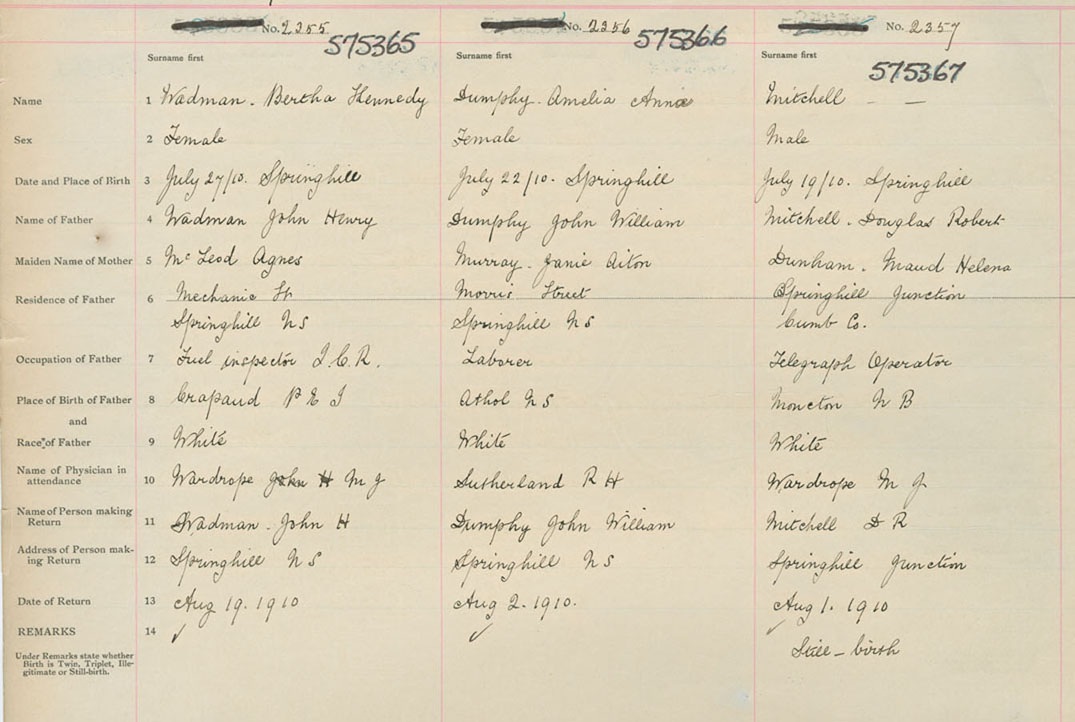 No. 2355 No. 2356 No. 2357
575365 575366 575367
Surname first Surname first Surname first
Name 1 Wadman. Bertha Kennedy Dumphy. Amelia Annie Mitchell — —
Sex 2 Female Female Male
Date and Place of Birth 3 July 27/10. Springhill July 22/10. Springhill July 19/10. Springhill
Name of Father 4 Wadman John Henry Dumphy John William Mitchell. Douglas Robert
Maiden Name of Mother 5 Mc Leod Agnes Murray. Janie Aiton Dunham. Maud Helena
Residence of Father 6 Mechanic St Morris Street Springhill Junction
Springhill N S Springhill N S Cumb Co.
Occupation of Father 7 Fuel inspector I.C.R. Laborer Telegraph Operator
Place of Birth of Father 8 Crapaud P E I Athol N S Moncton N B
and
Race of Father 9 White White White
Name of Physician in
attendance 10 Wardrope John H M J Sutherland R H Wardrope M J
Name of Person making
Return 11 Wadman. John H Dumphy John William Mitchell D R
Address of Person mak-
ing Return 12 Springhill N S Springhill N S Springhill Junction
Date of Return 13 Aug 19. 1910 Aug 2. 1910. Aug 1. 1910
REMARKS 14 ✓ ✓ ✓
Under Remarks state whether
Birth is Twin, Triplet, Ille-
gitimate or Still-birth.
Still – birth